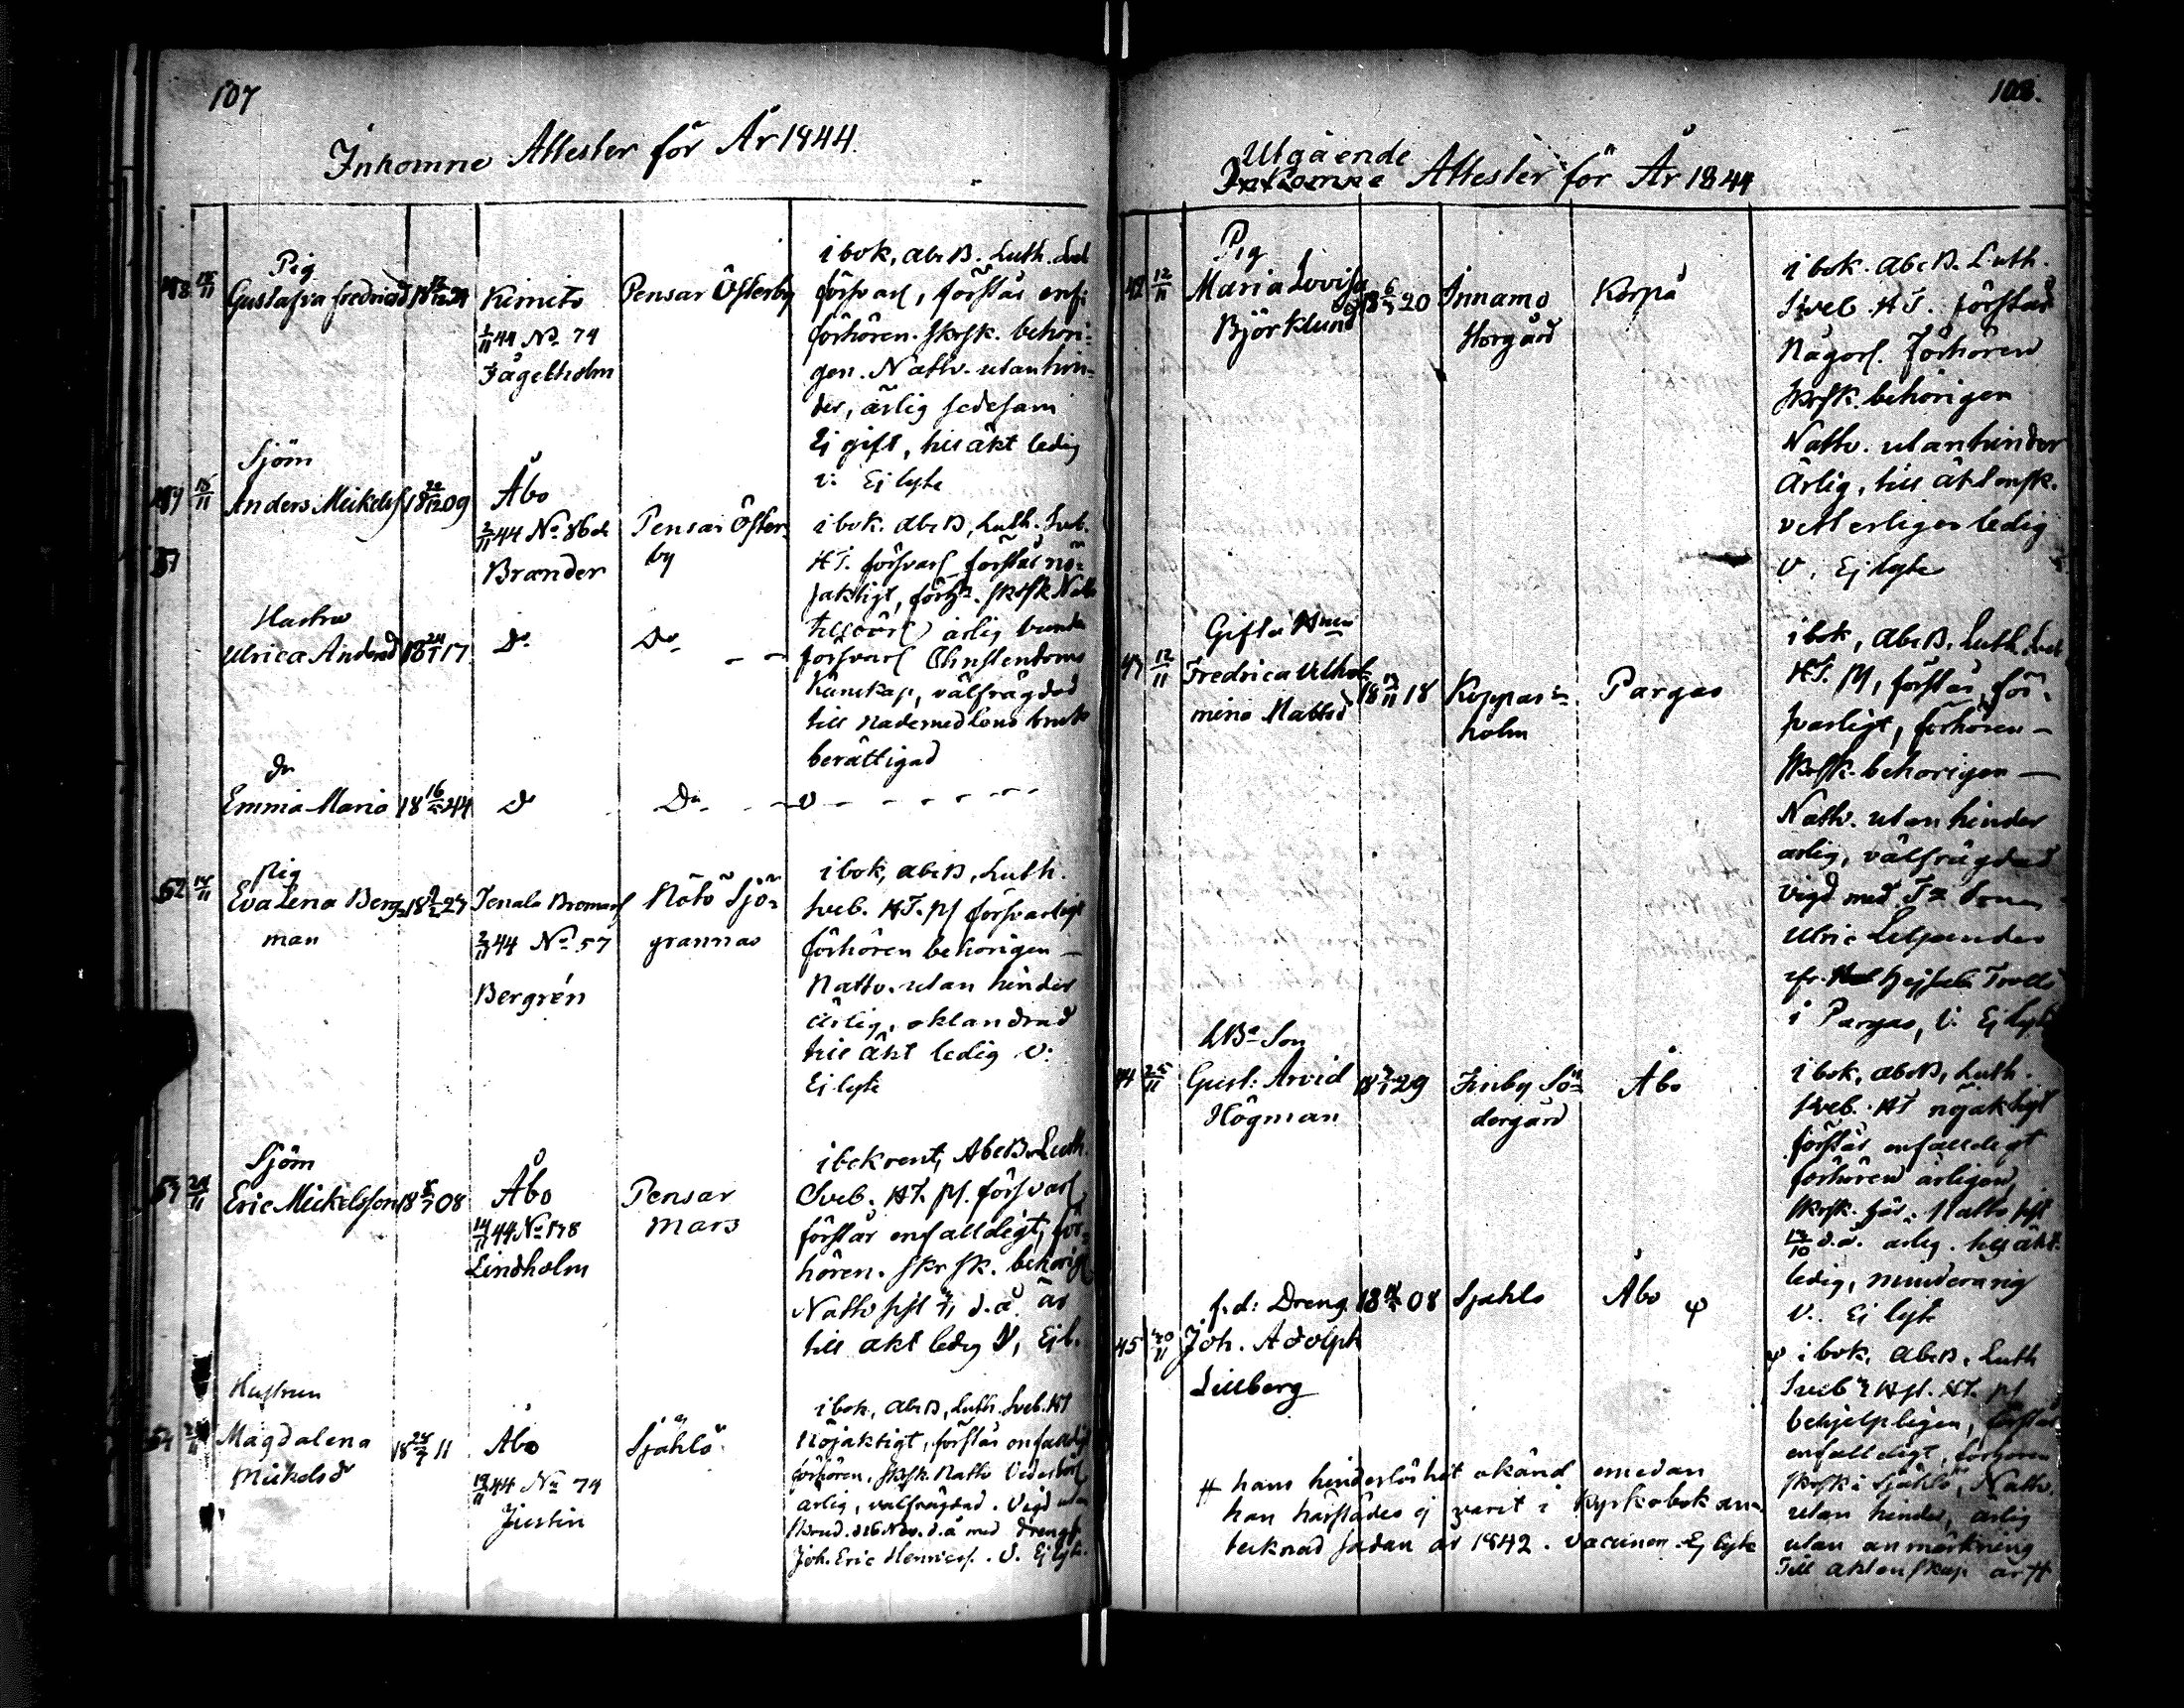 107
Inkomne Attester för År 1844.
48 15/11 Pig
Gustafva Fredricsd 18 24 Kimito Pensar Österby
1/11 44 No 74
Fågelholm
i bok, Abc B. Luth. Sveb
försvarl, förstår enf:
förhören. Skrsk. behöri-
gen. Nattv. utan hin-
der, ärlig sedesam
Ej gift, till äkt ledig
v: Ej lyte
15/11 Sjöm
Anders Mickelss 18 09 Åbo Pensar Öster-
by
2/11 44 No 86
Brander
i bok. Abc B, Luth. Sveb.
HT. försvarl förstår nö-
jaktigt, förhn. Skrsk Nattv
ärlig
Hustru
Ulrica Andersd 18 24/1 17 Do Do
försvarl Christendoms
kunskap, välfrägdad
till nådemedlens bruk
berättigad
Dr
Emma Maria 18 16/5 44 Do Do v
52 14/11 Pig
Eva Lena Berg-
man 18 27 Tenala Bromarf Nötö Sjö-
grannas
2/11 44 No 57
Bergrén
i bok, Abc B, Luth.
Sveb. HT. ps försvarligt
förhören behörigen
Nattv. utan hinder
Ärlig, oklandrad
till äkt ledig v:
Ej lyte
53 24/11 Sjöm
Eric Mickelsson 18 08 Åbo Pensar
Mars
14/11 44 No 178
Lindholm
i bok rent, Abc B Luth.
Sveb. HT. ps. försvarl
förstår enfalldigt, för-
hören. Skr sk. behörigl
Nattv sist d.å. är
till äkt ledig V, Ej l.
54 Hustrun
Magdalena
Mickelsdr 18 28/7 11 Åbo Sjählö
19/11 44 No 74
Justin
i bok, Abc B, Luth. Sveb. HT
Nöjaktigt, förstår enfalldigt
förhören. Skrsk. Nattv Vederbörl
ärlig, välfrägdad. Vigd utan
Brud. d 16 Nov. d.å med Drengen
Joh. Eric Henricss. V. Ej lyte.
108.
Utgående
Inkomne Attester för År 1844
42 12/11 Pig
Maria Lovisa
Björklund 18 20 Innamo
Norgård Korpå
i bok. Abc B. Luth.
Sveb. HT. förstår
Någorl. Förhören
Skrsk. behörigen
Nattv. utan hinder
Ärlig, till äktensk.
vetterligen ledig
V. Ej lyte
43 12/11 Gifta
Fredrica Wilhel-
mina Mattsdr 18 18 Koppars-
holm Pargas
i bok, Abc B. Luth Sveb.
HT. ps, förstår för-
svarligt, förhören
Skrsk. behörigen
Nattv. utan hinder
ärlig, välfrägdad
vigd med
Ulric Liljander
i Pargas, V. Ej lyte
44 25/11 Son
Gust: Arvid
Högman 18 29 Finby Sö-
dergård Åbo
i bok, Abc B, Luth.
Sveb. HT nöjaktigt
förstår enfalldigt
förhören årligen,
Skrsk. här. Nattv sist
13/10 d.å. ärlig. till äkt.
ledig, minderårig
V. Ej lyte
45 30/11 f.d: Dreng
Joh. Adolph
Lillberg 18 08 Sjählö Åbo φ
φ i bok. Abc B. Luth
Sveb: HT. ps
behjelpligen, förstår
enfalldigt, förhören
Skrsk i Sjählö, Nattv.
utan hinder, ärlig
utan anmärkning
Till äktenskap är #
# hans hinderlöshet okänd emedan
han härstädes ej varit i Kyrkobok an-
tecknad sedan år 1842. Vaccinen. Ej lyte